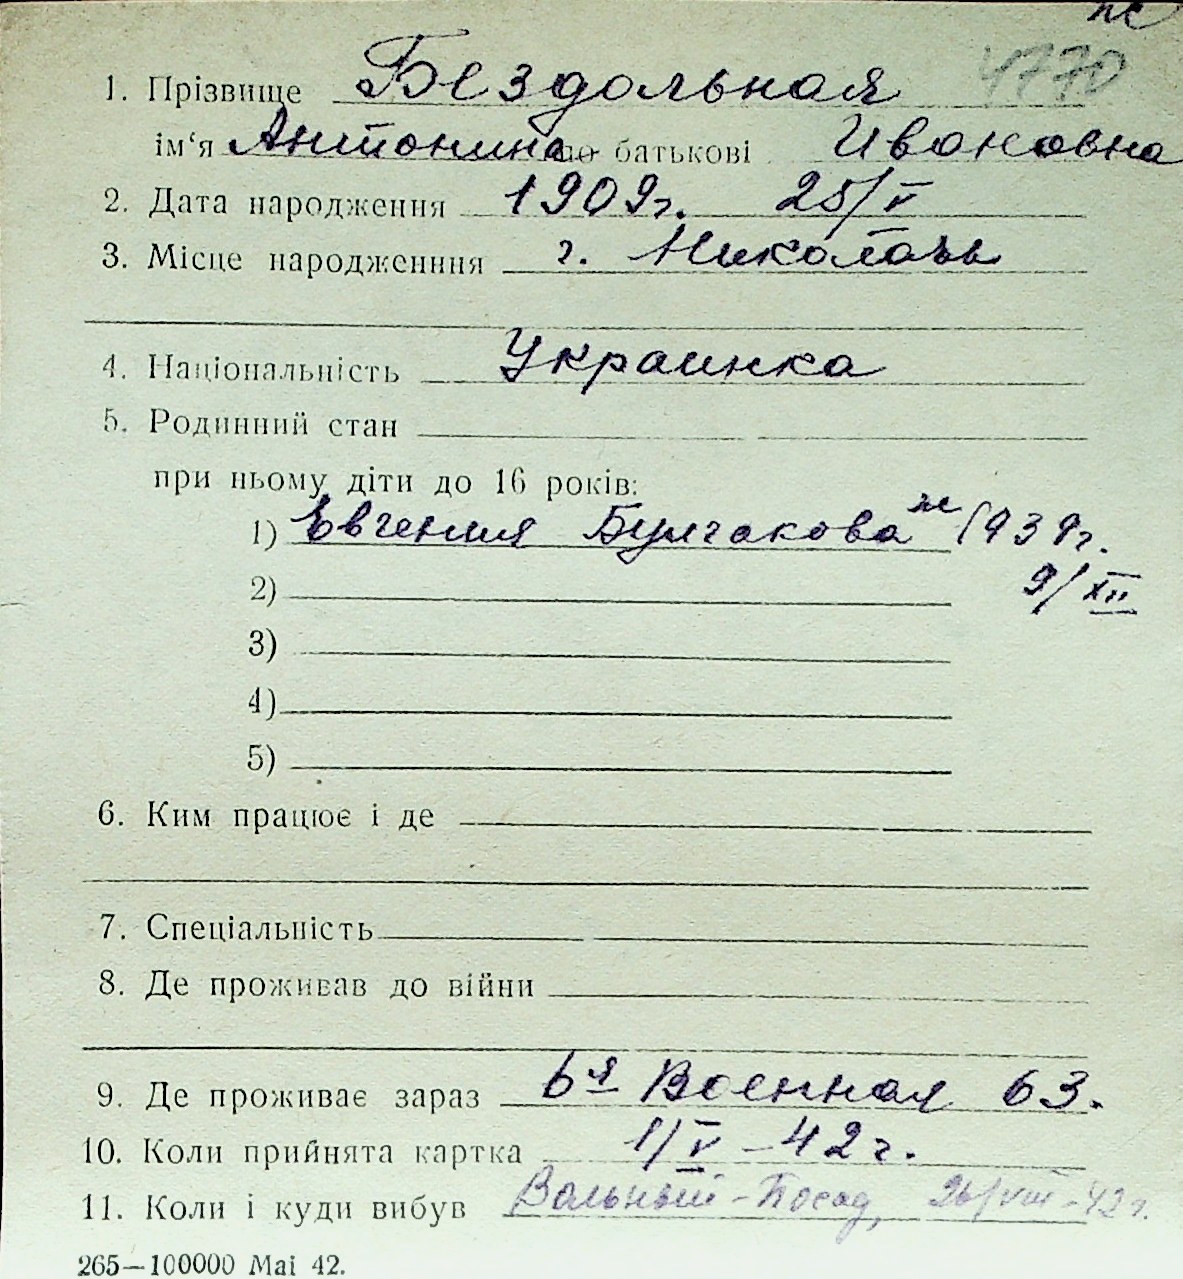 пс
4770
1. Прізвище Бездольная
ім‘я Антонина по батькові Ивановна
2. Дата народження 1909г. 25/V
3. Місце народженння г. Николаевъ
4. Національність Украинка
5. Родинний стан
при ньому діти до 16 років:
1) Евгения Булгакова ж 1939г.
2) 9/XII
3)
4)
5)
6. Ким працює і де
7. Спеціальність
8. Де проживав до війни
9. Де проживає зараз 6я Военная 63.
10. Коли прийнята картка 1/V – 42 г.
11. Коли і куди вибув Вольный – Посад, 26/VIII – 42 г.
265—100000 Маі 42.